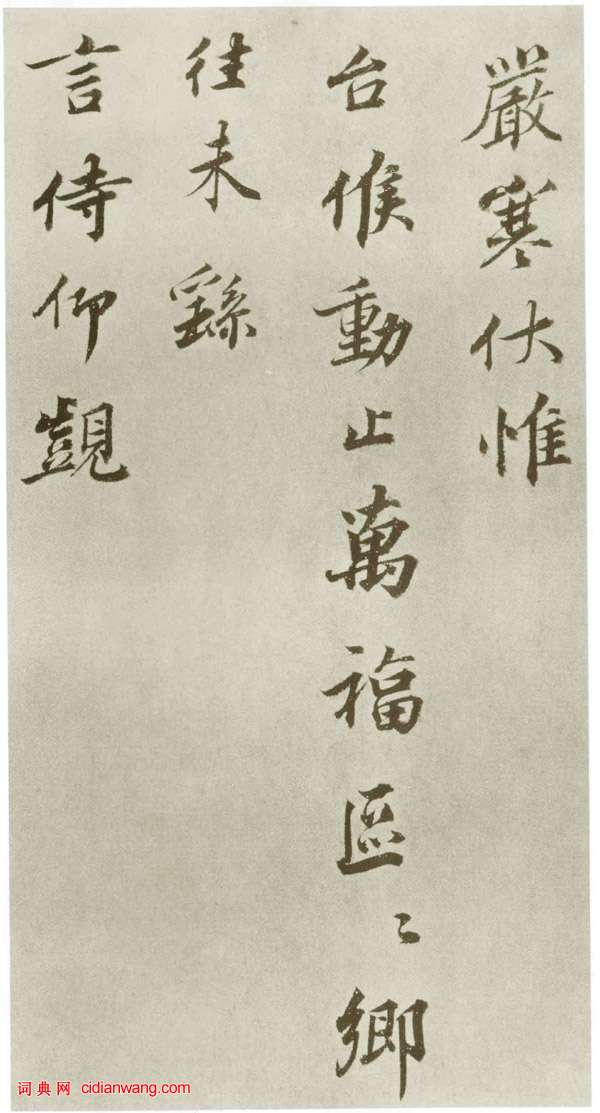 嚴寒伏惟
台候動止萬福區〻鄉
往未繇
言侍仰覬
词典网 cidianwang.com